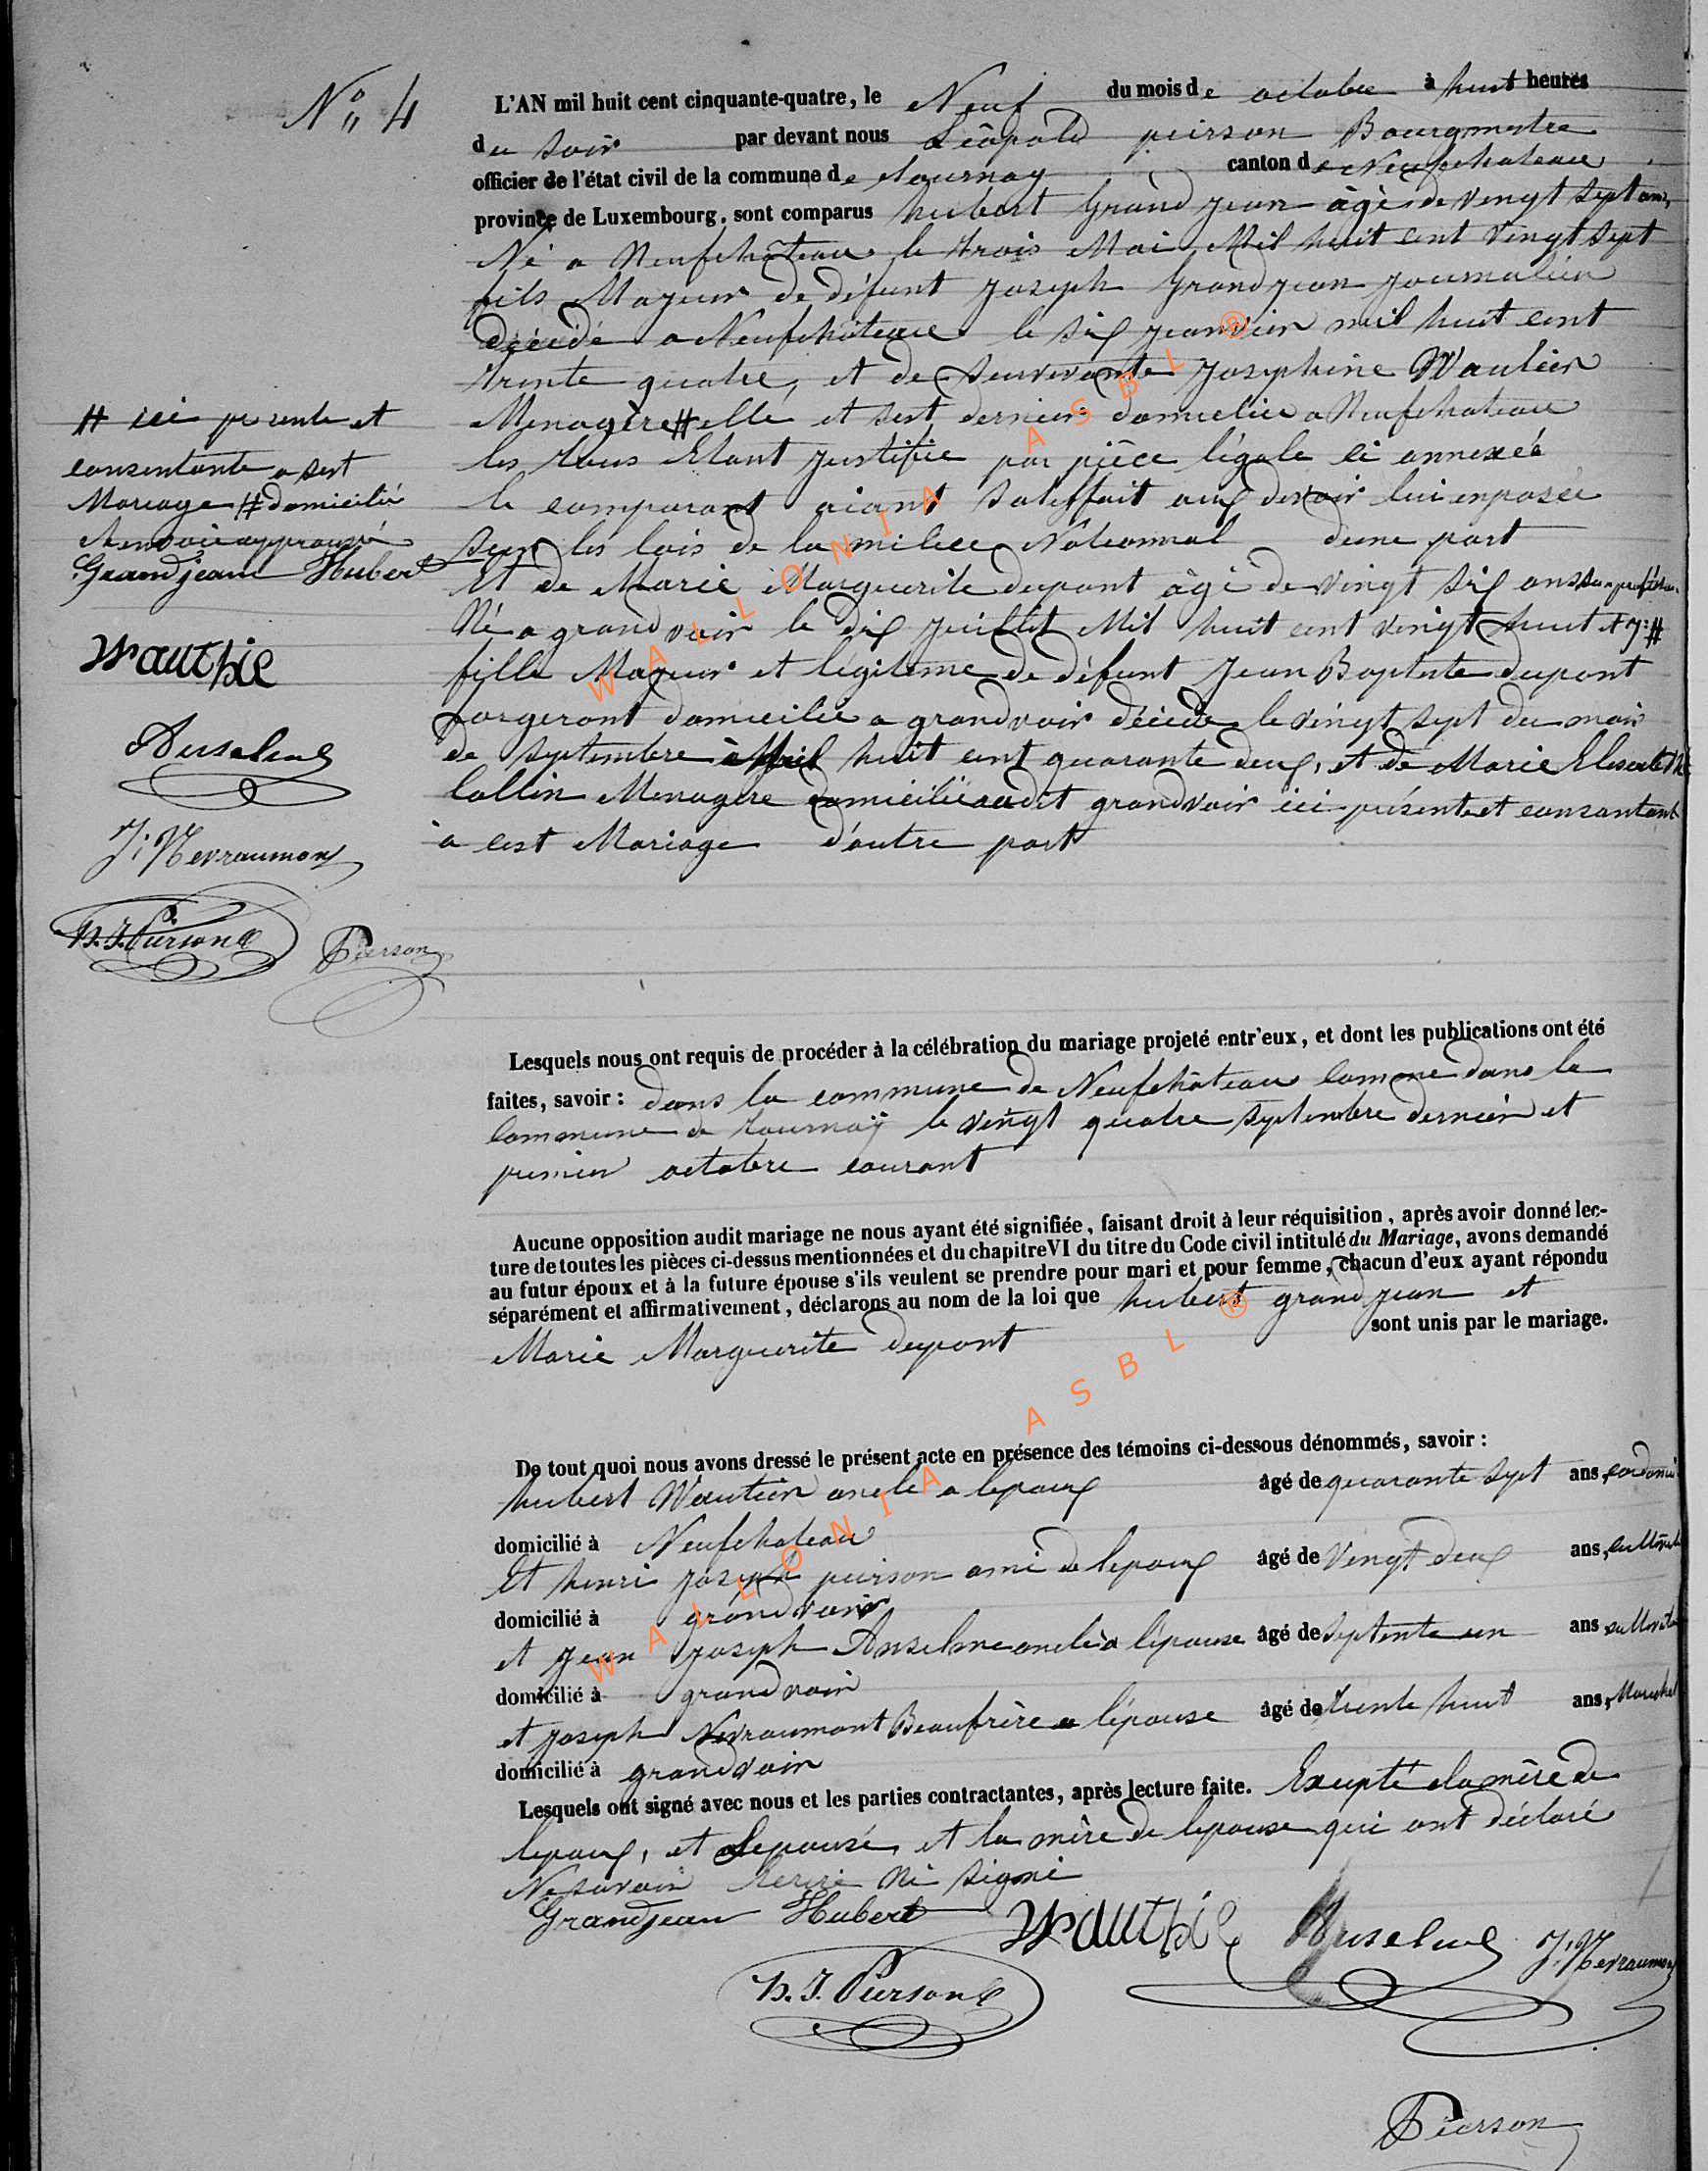 N° 4
L'AN mil huit cent cinquante-quatre, le Neuf du mois de octobre à huit heures
du soir par devant nous Léopold peirson Bourgmestre
officier de l'état civil de la commune de tournay canton de Neufchateau
province de Luxembourg, sont comparus hubert Grandjean âgé de vingt sept ans,
Né a Neufchâteau le trois Mai Mil huit cent vingt sept
fils Majeur de défunt Joseph Grandjean Journalier
décédé a Neufchâteau le six Jeanvier mil huit cent
trente quatre, et de survivante Josephine Wautier
Menagère # elle et sest dernier domicilie a Neufchateau
les tous Etant justifie par pièce légale ci annexéé
le comparant aiant satisffait aux devoir lui imposéé
sur les lois de la milice National d'une part
Et de Marie Marguerite dupont âgé de vingt six ans
Né a grandvoir le dix Juillet Mil huit cent vingt huit et #
fille Majeur et légitime de défunt Jean Baptiste dupont
forgeront domicilié a grandvoir décédé le vingt sept du mois
de septembre Mil huit cent quarante deux, et de Marie Elisabeth
Collin Menagere domiciliée audit grandvoir ici présente et consantant
à cest Mariage d'autre part
# ici presente et
consentante a sest
Mariage # domicilié
Renvoie approuvé
Grandjean Hubert
Wauthie
Anselme
J: Nevraumon
H. J. Pierson
Pierson
Lesquels nous ont requis de procéder à la célébration du mariage projeté entr'eux, et dont les publications ont été
faites, savoir: dans la commune de Neufchâteau comme dans la
commune de tournaÿ le vingt quatre septembre dernier et
premier octobre courant
Aucune opposition audit mariage ne nous ayant été signifiée, faisant droit à leur réquisition, après avoir donné lec-
ture de toutes les pièces ci-dessus mentionnées et du chapitre VI du titre du Code civil intitulé du Mariage, avons demandé
au futur époux et à la future épouse s'ils veulent se prendre pour mari et pour femme, chacun d'eux ayant répondu
séparément et affirmativement, déclarons au nom de la loi que hubert grandjean et
Marie Marguerite dupont sont unis par le mariage.
De tout quoi nous avons dressé le présent acte en présence des témoins ci-dessous dénommés, savoir:
hubert Wautier oncle a lepoux âgé de quarante sept ans,
domicilié à Neufchateau
Et henri joseph peirson ami de lepoux âgé de vingt deux ans,
domicilié à grandvoir
et jean joseph Anselme oncle à l'épouse âgé de septente un ans
domicilié à grandvoir
et joseph Nevraumont Beaufrère a l'épouse âgé de trente huit ans,
domicilié à grandvoir
Lesquels ont signé avec nous et les parties contractantes, après lecture faite. Exepté la mère de
lepoux, et Lepouse, et la mère de lepouse qui ont déclaré
Ne savoir Ni signé
Grandjean Hubert
Wauthie
Anselme
J: Nevraumon
H. J. Pierson
Pierson
WALLONIA ASBL ®
WALLONIA ASBL ®